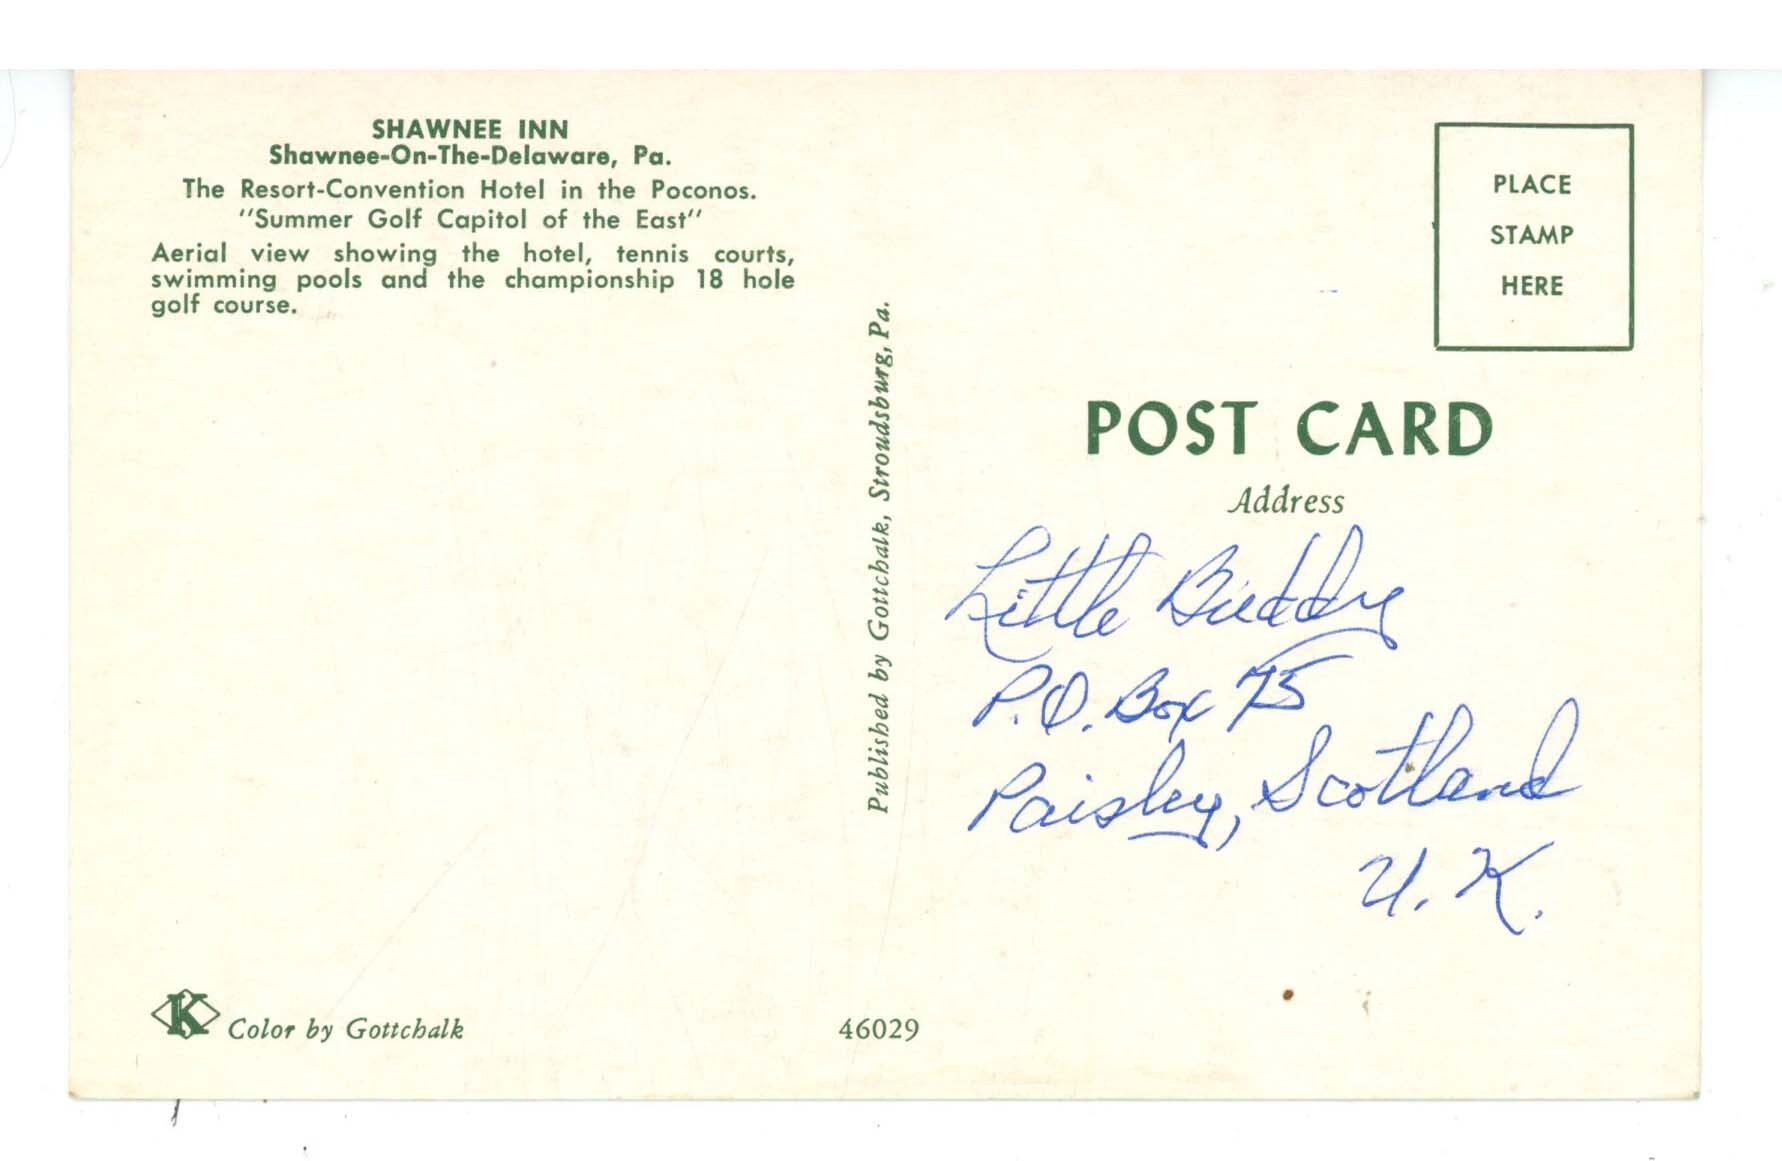 SHAWNEE INN
Shawnee-On-The-Delaware, Pa.
The Resort-Convention Hotel in the Poconos.
"Summer Golf Capitol of the East"
Aerial view showing the hotel, tennis courts,
swimming pools and the championship 18 hole
golf course.
Published by Gottchalk, Stroudsburg, Pa.
PLACE
STAMP
HERE
POST CARD
Address
Little Buddy
P.O. Box 75
Paisley, Scotland
U.K.
K Color by Gottchalk
46029